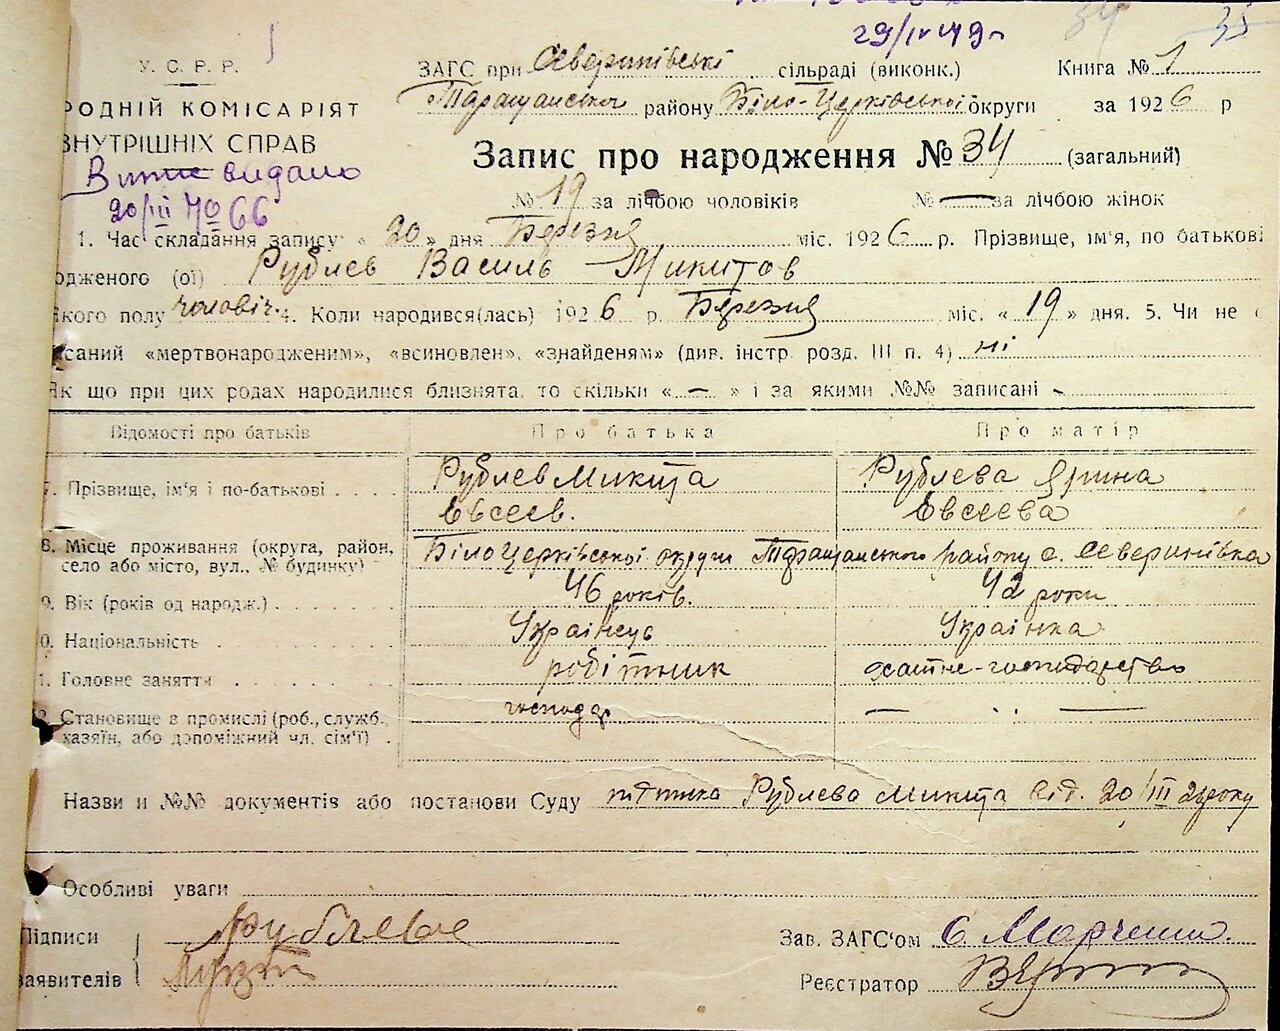 29/IV 49 г
34 35
У. С. Р. Р.
ЗАГС при Северинівські сільраді (виконк.) Книга № 1
РОДНІЙ КОМІСАРІЯТ
Таращанського району Біло-Церківської округи за 1926 р
ВНУТРІШНІХ СПРАВ
Запис про народження № 34 (загальний)
видано
20/III 70 66
№ 19 за лічбою чоловіків № — за лічбою жінок
1. Час складання запису « 20 » дня Березня міс. 1926 р. Прізвище, ім'я, по батькові
одженого (ої) Рублєв Василь Микитов
якого полу чоловіч. 4. Коли народився(лась) 1926 р. Березня міс. « 19 » дня. 5. Чи не є
исаний «мертвонародженим», «всиновлен», «знайденям» (див. інстр. розд. III п. 4) ні
Як що при цих родах народилися близнята, то скільки « — » і за якими №№ записані -
Відомості про батьків Про батька Про матір
7. Прізвище, ім'я і по-батькові Рублєв Микита Рублєва Ярина
Євсєєв. Євсєєва
8. Місце проживання (округа, район, село або місто, вул., № будинку) БілоЦерківської округи Таращанського району с. Северинівка
9. Вік (років од народж.) 46 років. 42 роки
0. Національність Українець Українка
1. Головне заняття робітник хатне-господарство
2. Становище в промислі (роб., служб. господар — . . —
хазяїн, або допоміжний чл. сім'ї)
Назви и №№ документів або постанови Суду Рублєва Микита від. 20/III 26 року
Особливі уваги
Підписи Рублєва
заявителів
Зав. ЗАГС'ом
Реєстратор